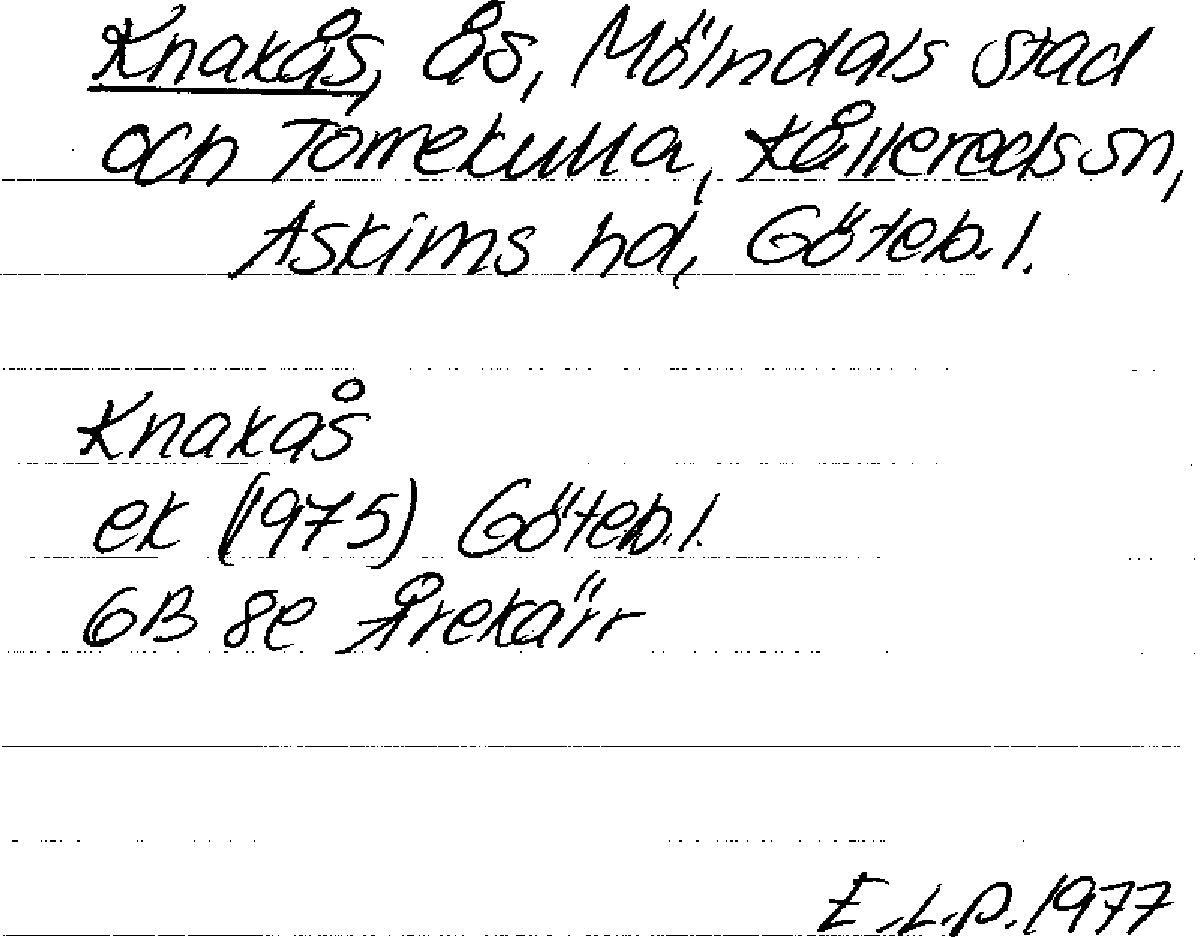 Knakås, ås, Mölndals stad
och Torrekulla, Kållereds sn,
Askims hd, Göteb. l.
Knakås
ek (1975) Göteb. l.
6B 8e Årekärr
E.L.P. 1977